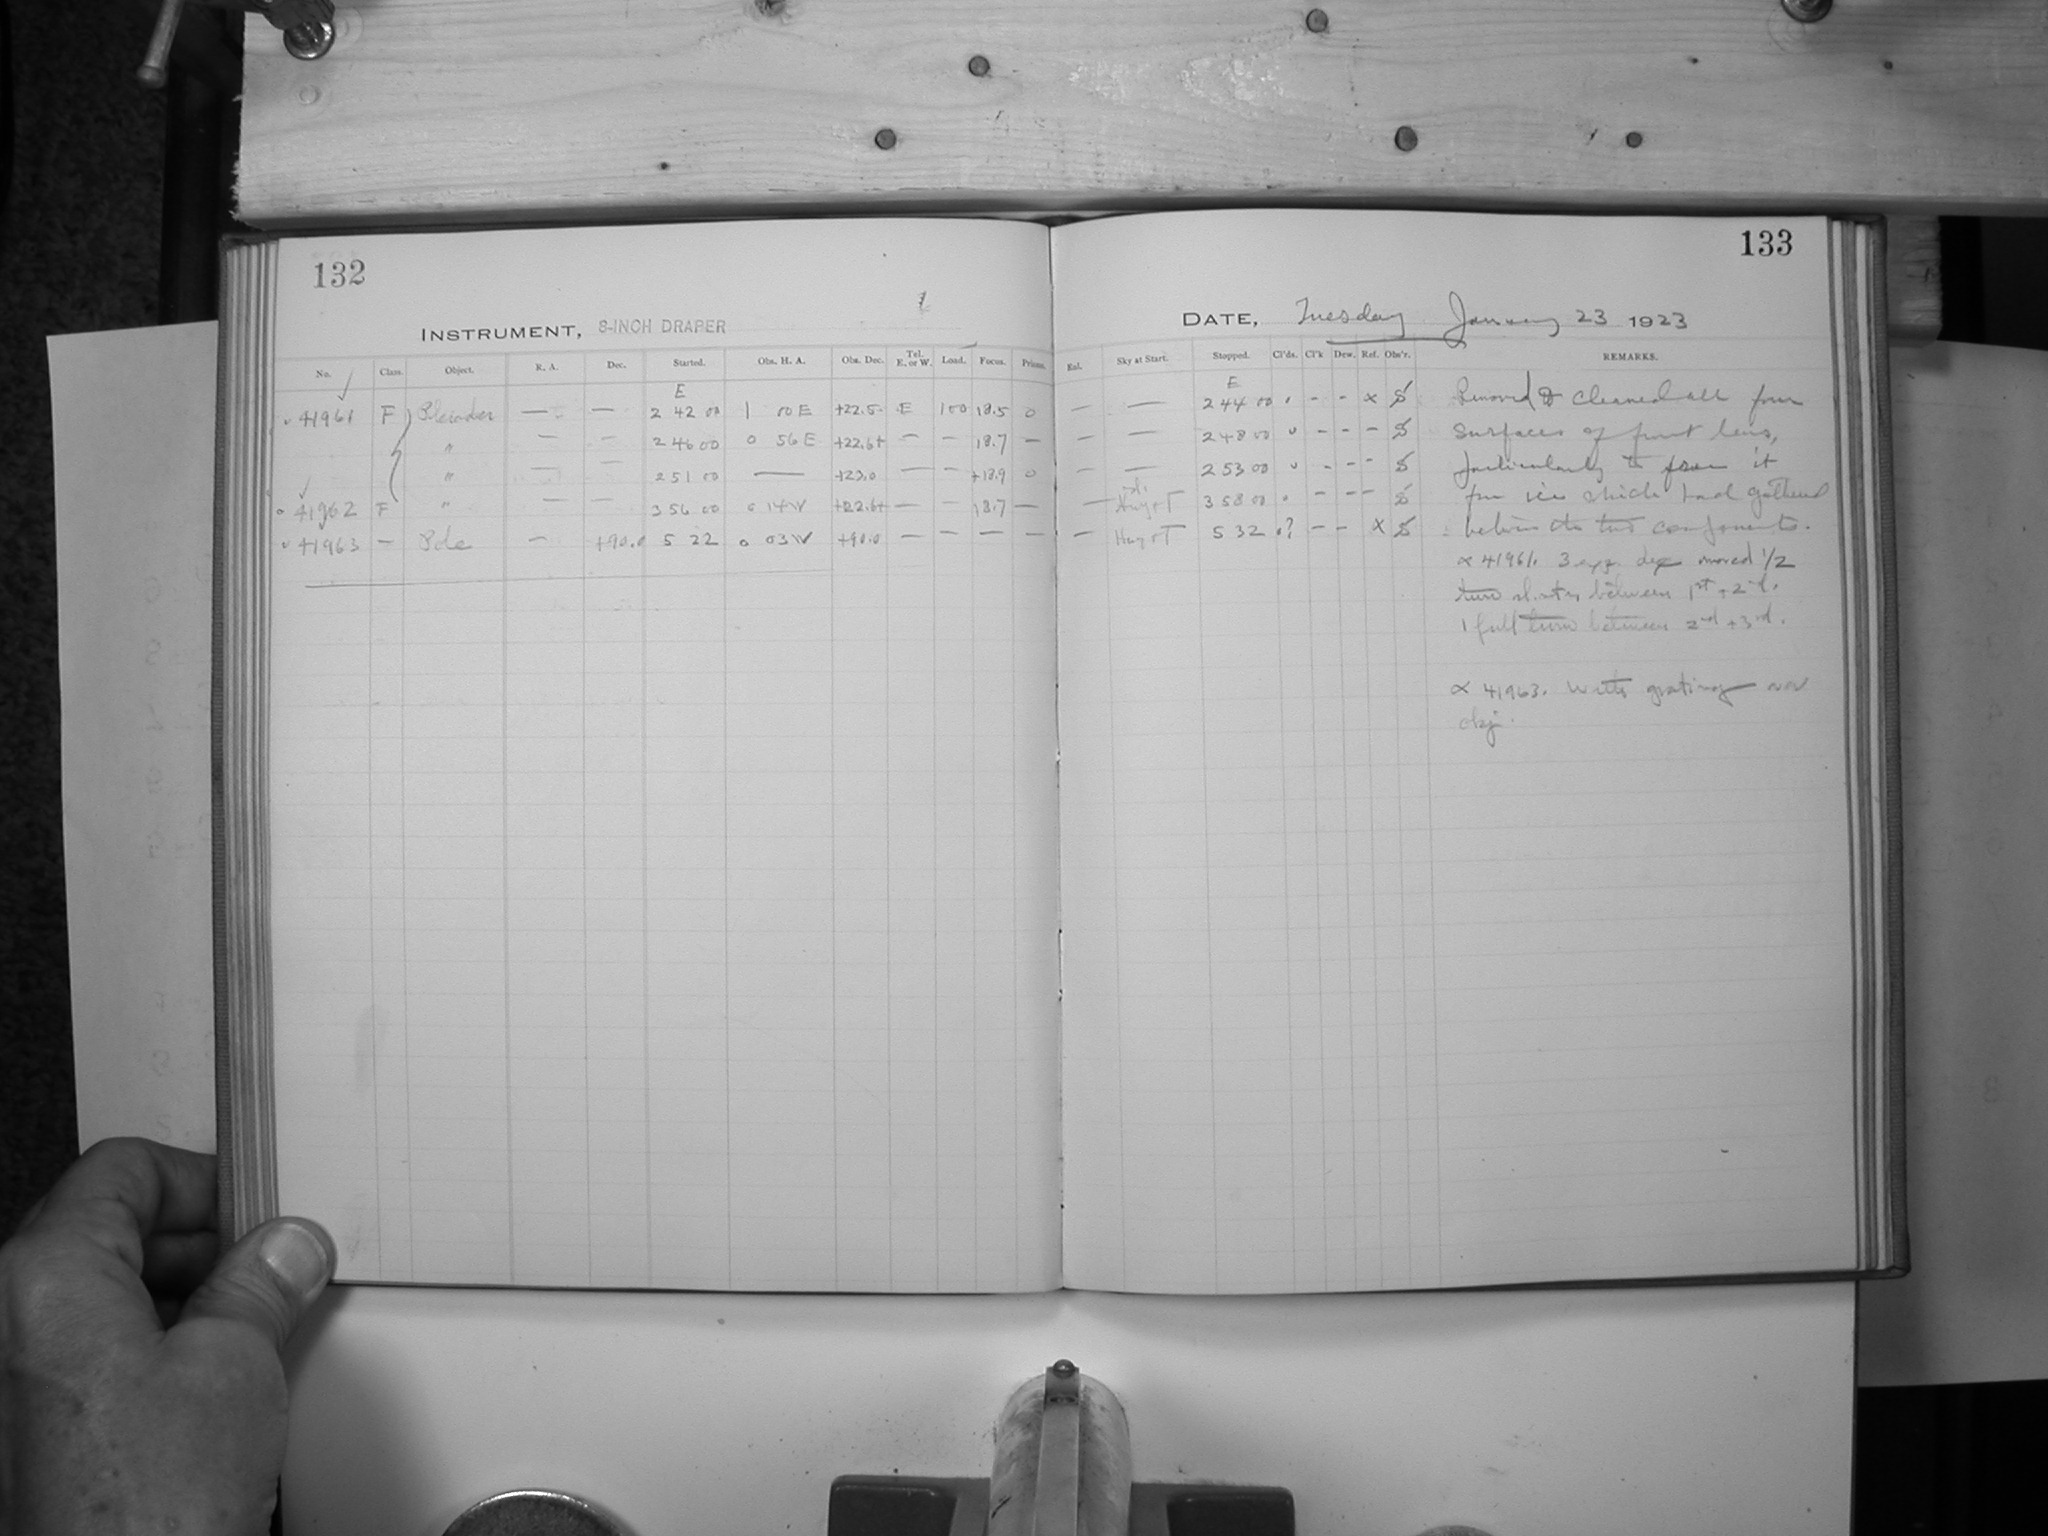 132
133
INSTRUMENT, 8-INCH DRAPER
DATE, Tuesday January 23 1923
No. Class. Object. R. A. Dec. Started. Obs. H. A. Obs. Dec. Tel. E. or W. Load. Focus. Prisms.
Eal. Sky at Start. Stopped. Cl'ds. Cl'k Dew. Ref. Obs'r. REMARKS.
E
E
41961 F Pleiades — — 2 42 00 1 00 E +22.5 E 100 18.5 0 — — 2 44 00 0 - - x S
" — — 2 46 00 0 56 E +22.6+ — — 18.7 — — — 2 48 00 0 - - - S
" — — 2 51 00 — +23.0 — — +18.9 0 — — 2 53 00 0 - - - S
41962 F " — — 3 56 00 0 14 W +22.6+ — — 18.7 — — 3 58 00 0 - - - S
41963 — Pole — +90.0 5 22 0 03 W +90.0 — — — — — 5 32 0? - - x S
Removed & cleaned all four
surfaces of front lens,
particularly to free it
ice which had gathered
between the two components.
41961. 3 exp. moved 1/2
turn between 1st + 2nd.
1 full turn between 2nd + 3rd.
41963. With grating over
obj.